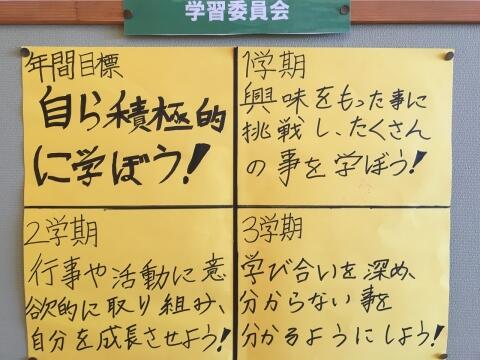 学習委員会
年間目標
自ら積極的
に学ぼう!
1学期
興味をもった事に
挑戦し、たくさん
の事を学ぼう!
2学期
行事や活動に意
欲的に取り組み、
自分を成長させよう!
3学期
学び合いを深め、
分からない事を
分かるようにしよう!